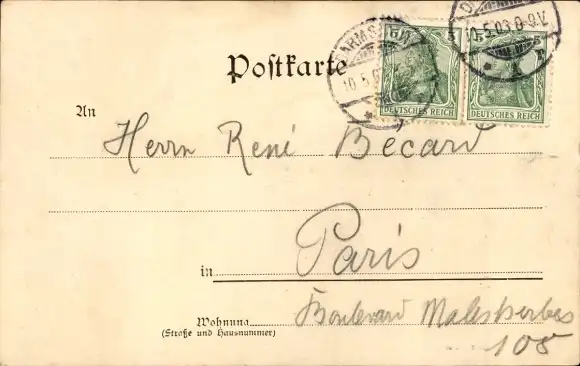 Postkarte
DARMSTADT
10.5.03.8-9V.
5
5
DEUTSCHES REICH
DEUTSCHES REICH
An
Herrn René Becard
in Paris
Wohnung
(Straße und Hausnummer)
Boulevard Malesherbes
108